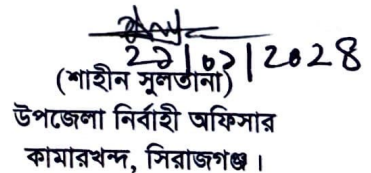 ২০২৪
(শাহীন সুলতানা)
উপজেলা নির্বাহী অফিসার
কামারখন্দ, সিরাজগঞ্জ।